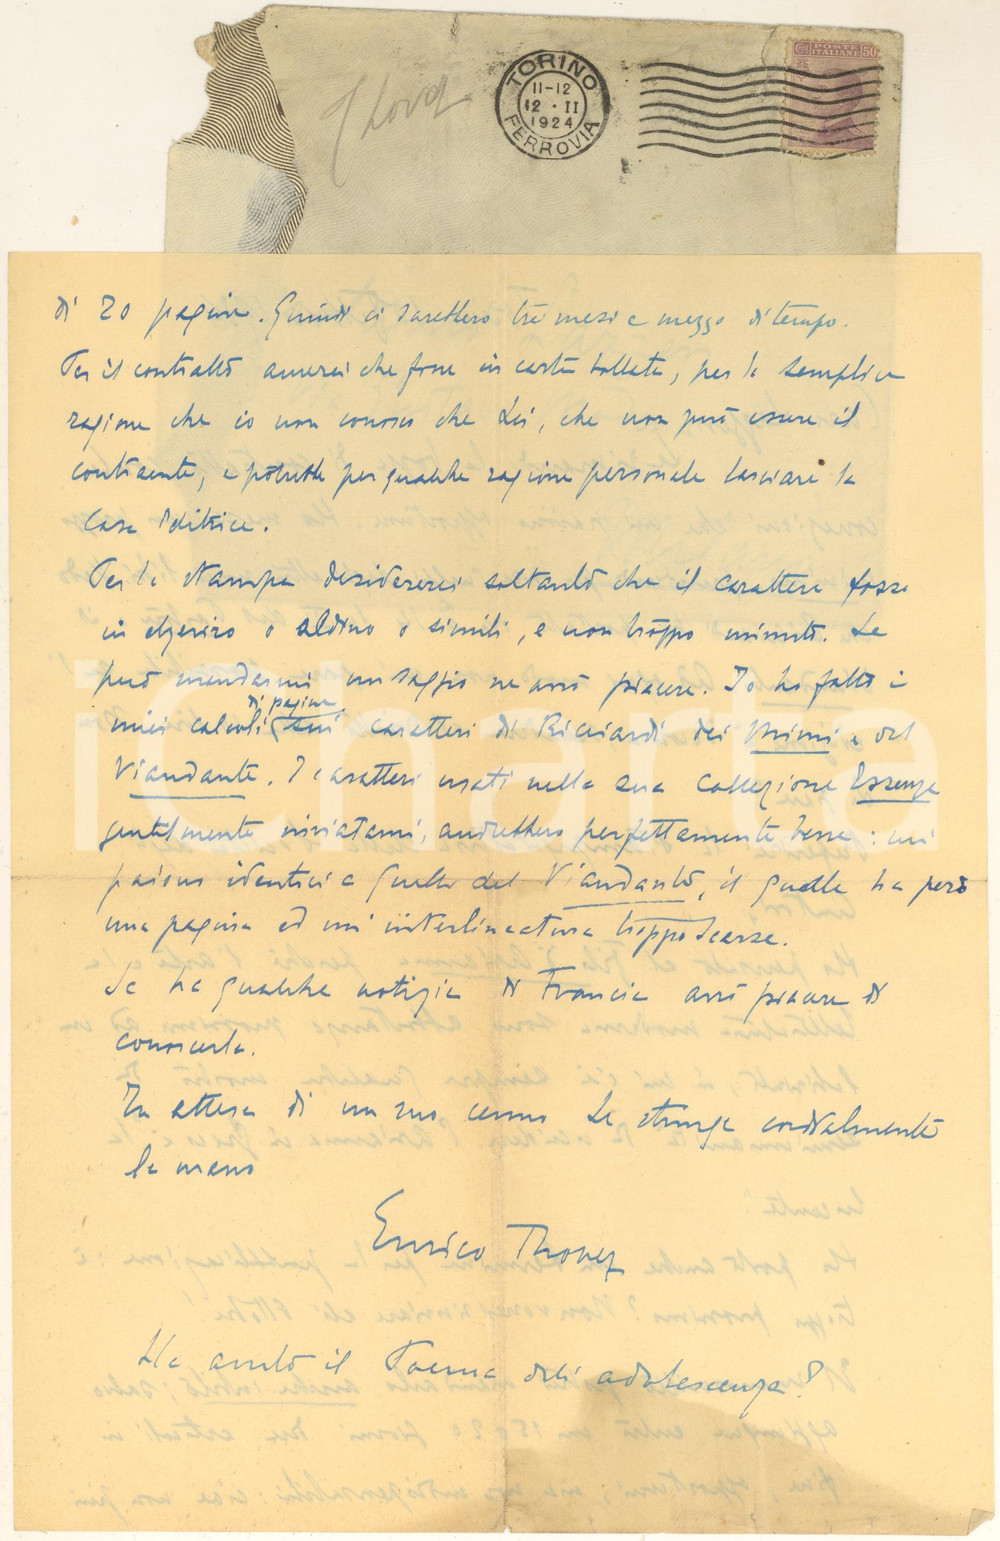 Thovez
TORINO
11-12
12 · II
1924
FERROVIA
POSTE ITALIANE 50
di 20 pagine. Quindi ci sarebbero tre mesi e mezzo di tempo.
Per il contratto amerei che fosse in carta bollata, per la semplice
ragione che io non conosco che Lei, che non può essere il
contraente, e potrebbe per qualche ragione personale lasciare la
Casa Editrice.
Per la stampa desidererei soltanto che il carattere fosse
in elzeviro o aldino o simili, e non troppo minuto. Se
può mandarmi un saggio ne avrò piacere. Io ho fatto i
di pagine
miei calcoli sui caratteri di Ricciardi dei Mimi e del
Viandante. I caratteri usati nella sua collezione Essenze
gentilmente inviatami, andrebbero perfettamente bene: mi
paiono identici a quelli del Viandante, il quale ha però
una pagina ed un'interlineatura troppo scarse.
Se ha qualche notizia di Francia avrò piacere di
conoscerla.
In attesa di un suo cenno Le stringo cordialmente
la mano
Enrico Thovez
Ha avuto il Poema dell'adolescenza?
finarte